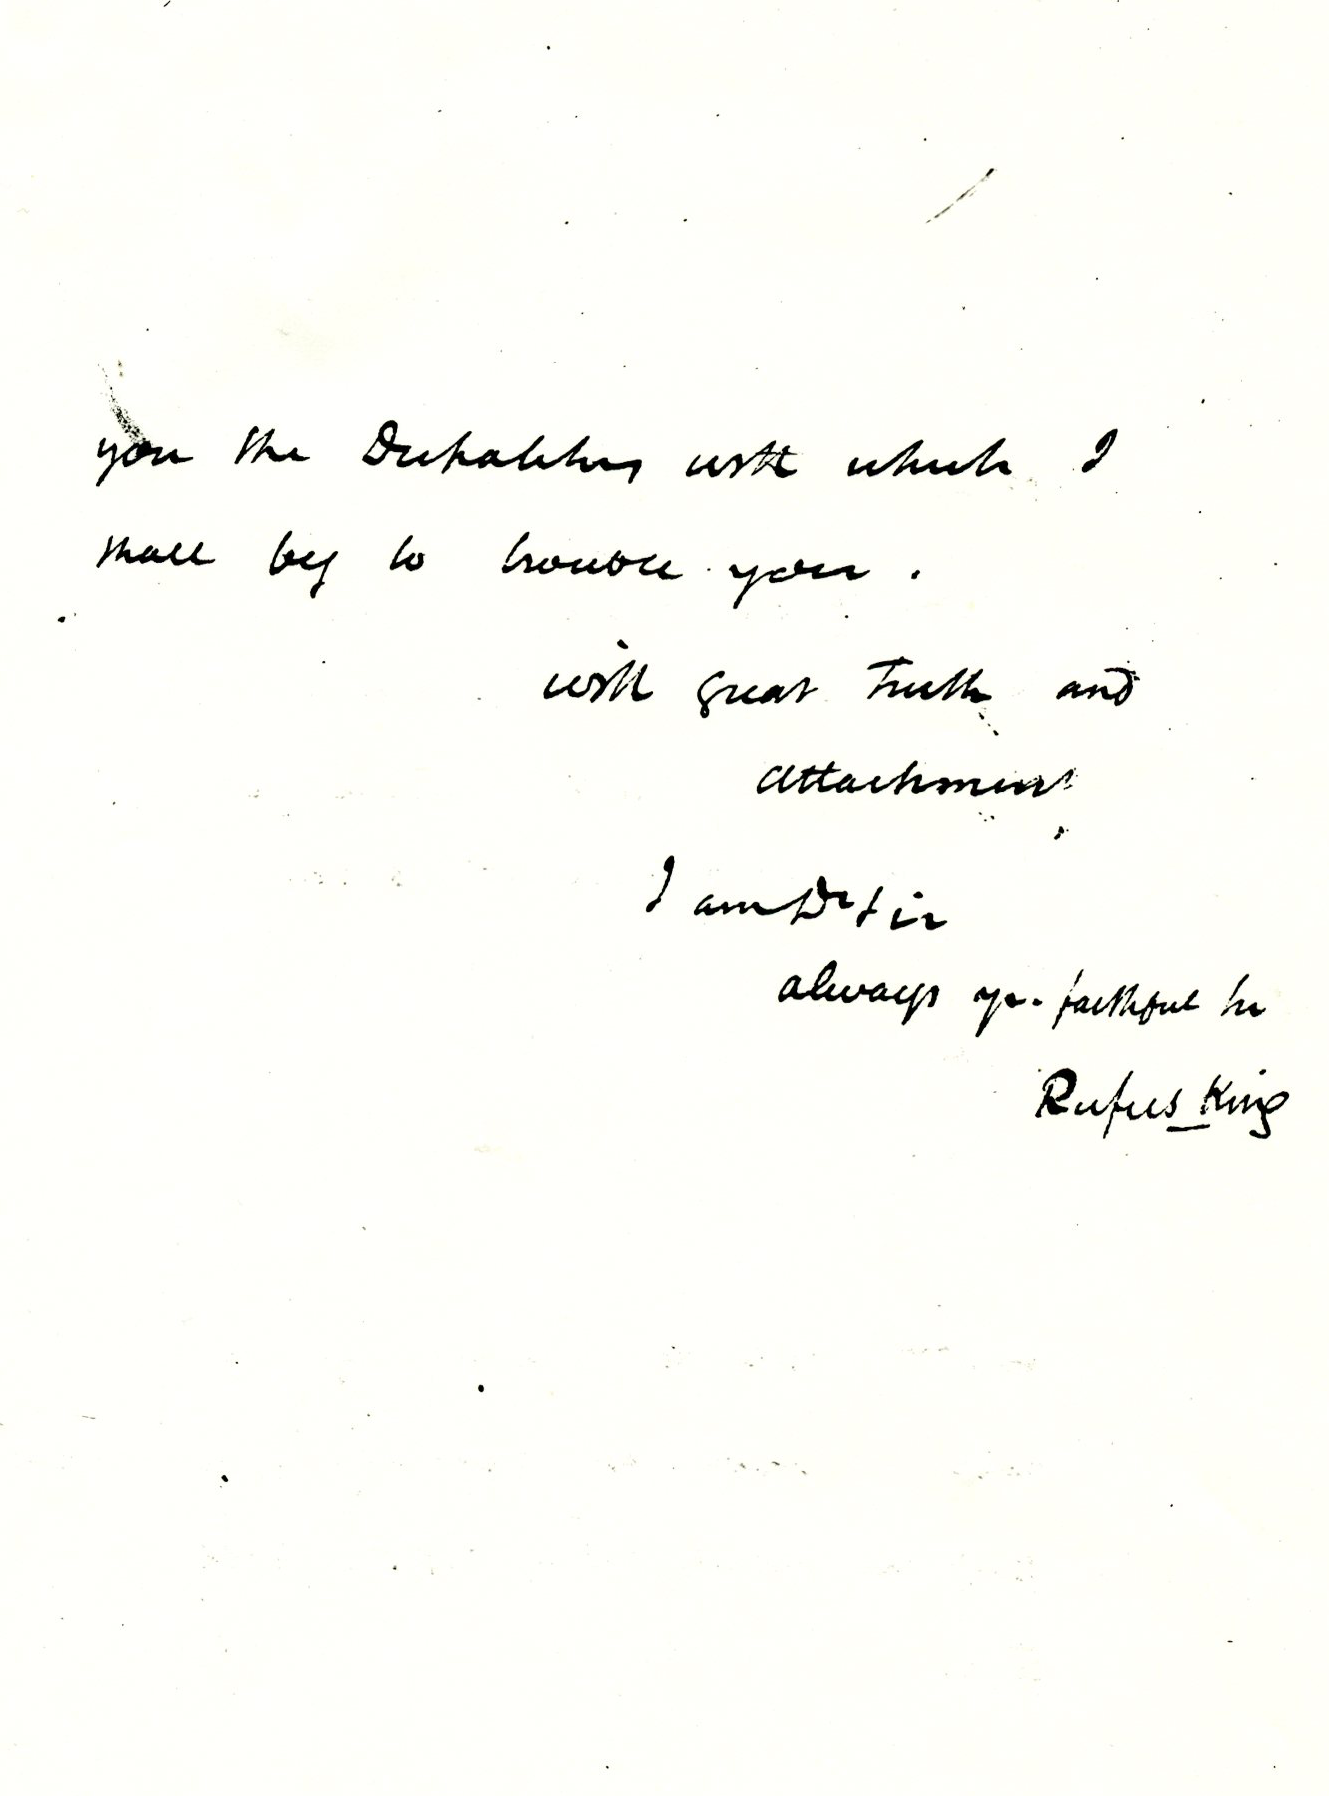 you the Dispatches with which I
shall beg to trouble you.
with great Truth and
attachment
I am Dr Sir
always yr. faithful Sr
Rufus King